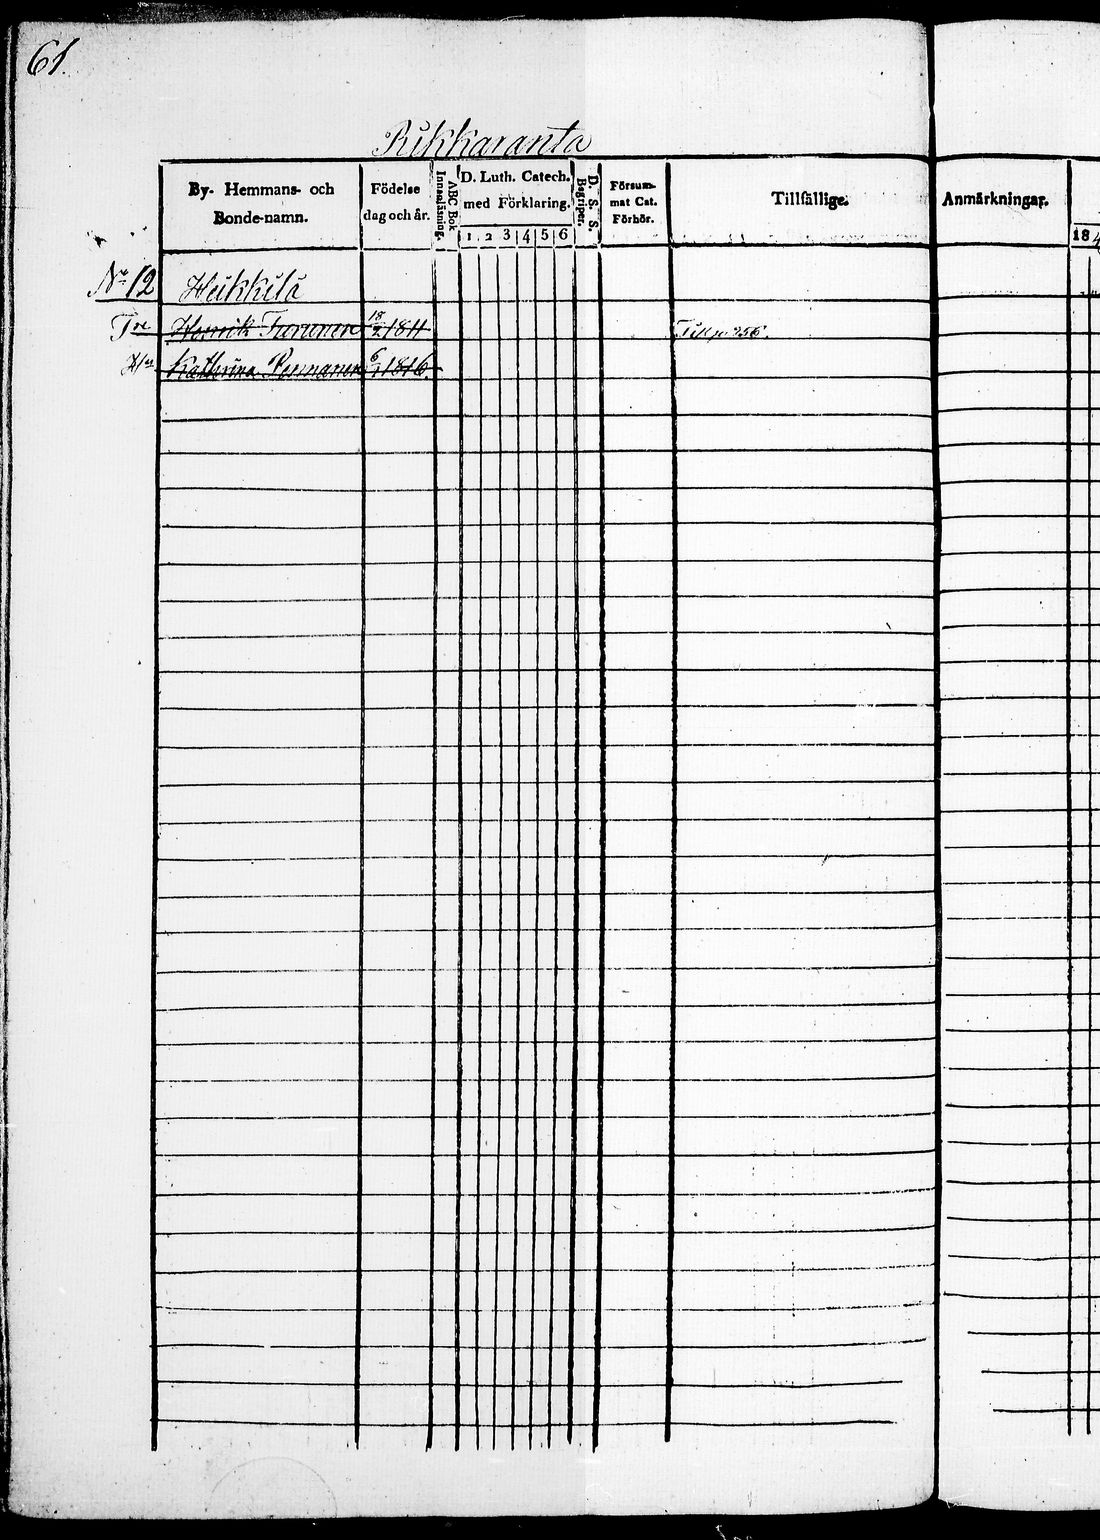 61.
Rikkaranta
By- Hemmans- och Bonde-namn.
Födelse dag och år.
Innanläsning.
ABC Bok
D. Luth. Catech. med Förklaring.
1 2 3 4 5 6
Begriper.
D. S. S.
Försummat Cat. Förhör.
Tillfällige.
Anmärkningar.
184
No 12 Heikkilä
Henrik Turunen 18/2 1811 Till p. 256.
Kathrina 6/1 1816.